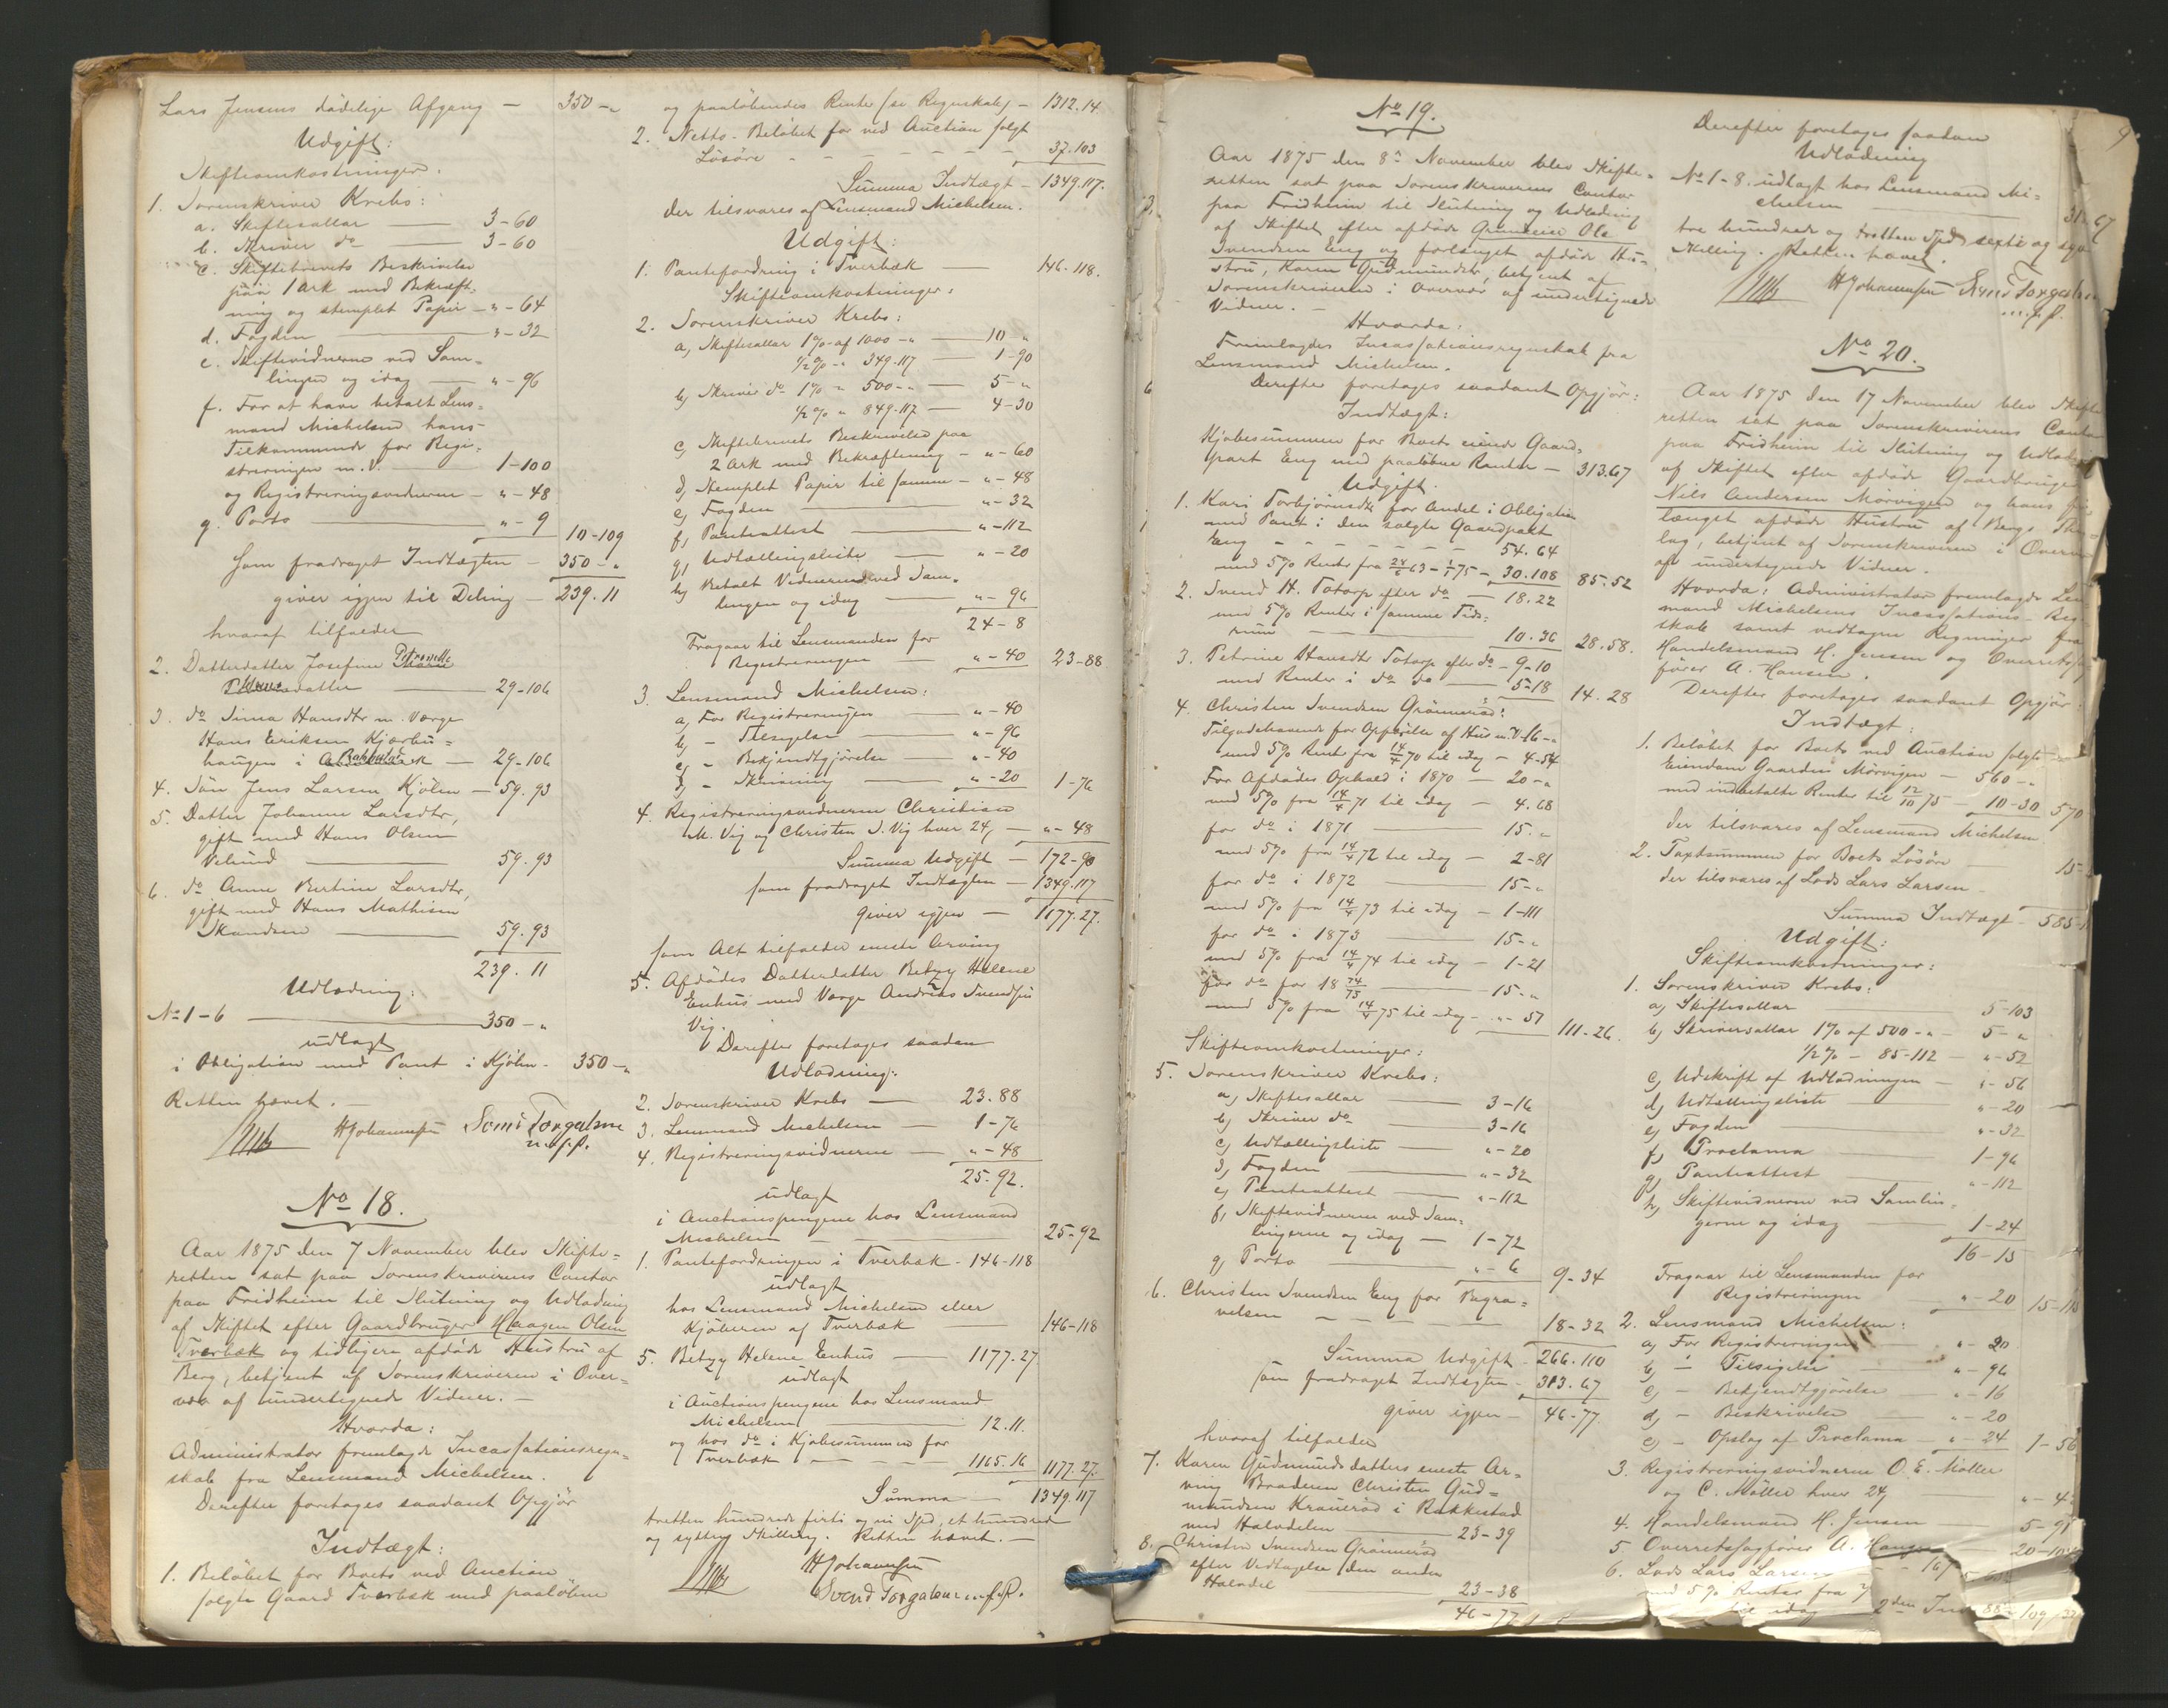 Lars Jensens dødelige Afgang — 350 -"
Udgift:
Skifteomkostninger.
1. Sorenskriver Krebs:
a. Skiftesallar — 3-60
b. Skriver do — 3-60
c. Skiftebrevets Beskrivelse
paa 1 Ark med Bekræft-
ning og stemplet Papir - " - 64
d. Fogden — " - 32
e. Skiftevidnerne ved Sam-
lingen og idag — " - 96
f. For at have betalt Lens-
mand Michelsen hans
Tilkommende for Regi-
streringen m. V. — 1-100
og Registreringsvidnerne - " - 48
g. Porto — " - 9 10-109
som fradraget Indtægten — 350 -"
giver igjen til Deling — 239.11
hvoraf tilfalder
2. Datterdatter Josefine Petronelle
datter — 29-106
3. do Sina Hansdtr m. Værge
Hans Eriksen Kjærbu-
haugen i — 29-106
4. Søn Jens Larsen Kjølen — 59.93
5. Datter Johanne Larsdtr,
gift med Hans Olsen
Velund — 59.93
6. do Anne Bertine Larsdtr,
gift med Hans Mathisen
Skandsen — 59.93
239.11
Udlodning:
No 1-6 — 350 -"
udlagt
i Obligation med Pant i Kjølen - 350 -"
Retten hævet. —
HJohannesen Svend Torgalsen
m.f.P.
No 18.
Aar 1875 den 7 November blev Skifte-
retten sat paa Sorenskriverens Contor
paa Fridheim til Slutning og Udlodning
af Skiftet efter Gaardbruger Haagen Olsen
Tverbæk og tidligere afdøde Hustru af
Berg, betjent af Sorenskriveren i Over-
vær af undertegnede Vidner. —
Hvorda:
Administrator fremlagde Incassationsregn-
skab fra Lensmand Michelsen.
Derefter foretages saadant Opgjør
Indtægt:
1. Beløbet for Boets ved Auction
solgte Gaard Tverbæk med paaløbne
og paaløbendes Renter (se Regnskab) - 1312.14
2. Netto-Beløbet for ved Auction solgt
Løsøre - - - - - - 37.103
Summa Indtægt - 1349.117.
der tilsvares af Lensmand Michelsen.
Udgift:
1. Pantefordring i Tverbæk — 146.118.
Skifteomkostninger:
2. Sorenskriver Krebs:
a, Skiftesallar 1% af 1000 -" — 10 "
1/2% - " 349.117 1-90
b, Skriver do 1% " 500 -" — 5 -"
1/2% " 849.117 — 4-30
c, Skiftebrevets Beskrivelse paa
2 Ark med Bekræftning - " - 60
d, Stemplet Papir til samme - " - 48
e, Fogden — " - 32
f, Panteattest — " - 112
g, Udtællingsliste — " - 20
h, Betalt Vidnerne ved Sam-
lingen og idag — " - 96
24-8
Fragaar til Lensmanden for
Registreringen — " - 40 23-88
3. Lensmand Michelsen:
a, For Registreringen — " - 40
b, - Tilsigelse — " - 96
c, - Bekjendtgjørelse — " - 40
d, - Skrivning — " - 20 1-76
4. Registreringsvidnerne Christian
M. Vig og Christen J. Vig hver 24, — " - 48
Summa Udgift — 172-90
som fradraget Indtægten — 1349.117
giver igjen — 1177.27.
som Alt tilfalder eneste Arving
5. Afdødes Datterdatter Betzy Helene
Enhus med Værge Andreas Svendsen
Vig.
Derefter foretages saadan
Udlodning:
2. Sorenskriver Krebs — 23.88
3. Lensmand Michelsen — 1-76
4. Registreringsvidnerne — " - 48
25.92.
udlagt
i Auctionspengene hos Lensmand
Michelsen — 25-92
1. Pantefordringen i Tverbæk - 146-118
udlagt
hos Lensmand Michelsen eller
Kjøberen af Tverbæk — 146-118
5. Betzy Helene Enhus — 1177.27
udlagt
i Auctionspengene hos Lensmand
Michelsen — 12.11.
og hos do i Kjøbesummen for
Tverbæk — 1165.16 1177.27.
Summa — 1349.117
tretten hundrede firti og ni Spd, et hundred
og sytten Skilling. Retten hævet. —
HJohannesen
Svend Torgalsen m.f.P.
No 19.
Aar 1875 den 8de November blev Skifte-
retten sat paa Sorenskriverens Contor
paa Fridheim til Slutning og Udlodning
af Skiftet efter afdøde Grønneier Ole
Svendsen Eng og forlænget afdøde Hu-
stru, Karen Gudmundsdtr, betjent af
Sorenskriveren i Overvær af undertegnede
Vidner. —
Hvorda:
Fremlagdes Incassationsregnskab fra
Lensmand Michelsen.
Derefter foretages saadant Opgjør:
Indtægt:
Kjøbesummen for Boets eiende Gaard-
part Eng med paaløbne Renter — 313.67
Udgift.
1. Kari Torbjørnsdtr for Andel i Obligation
med Pant i den solgte Gaardpart
Eng - - - - - - 54.64
med 5% Renter fra 24/6 63 - 1/5 75 - 30.108 85.52
2. Svend H. Totorp efter do — 18.22
med 5% Renter i samme Tids-
rum — 10.36 28.58.
3. Petrine Hansdtr Totorp efter do - 9-10
med Renter i do do — 5-18 14.28
4. Christen Svendsen Grønnerød:
Tilgodehavende for Opførelse af Hus m.V. 16 -"
med 5% Rente fra 14/4 70 til idag — 4-54
For Afdødes Ophold i 1870 — 20 -"
med 5% fra 14/4 71 til idag — 4.68
for do i 1871 — 15. "
med 5% fra 14/4 72 til idag — 2-81
for do i 1872 — 15 -"
med 5% fra 14/4 73 til idag — 1-111
for do i 1873 — 15 -"
med 5% fra 14/4 74 til idag — 1-21
for do for 18 74/75 — 15 -"
med 5% fra 14/4 75 til idag - " - 57 111-26.
Skifteomkostninger:
5. Sorenskriver Krebs:
a, Skiftesallar — 3-16
b, Skriver do — 3-16
c, Udtællingsliste — " - 20
d, Fogden — " - 32
e, Panteattest — " - 112
f, Skiftevidnerne ved Sam-
lingerne og idag — 1-72
g, Porto — " - 6 9-34
6. Christen Svendsen Eng for Begra-
velsen - - - - - 18-32
Summa Udgift - 266.110
som fradraget Indtægten - 313.67
giver igjen — 46-77.
hvoraf tilfalder
7. Karen Gudmundsdatters eneste Ar-
ving Broderen Christen Gud-
mundsen Krauerød i Rakkestad
med Halvdelen — 23-39
8. Christen Svendsen Grønnerød
efter Vedtagelse den anden
Halvdel — 23-38
46-77
Derefter foretages saadan
Udlodning
No 1-8. udlagt hos Lensmand Mi-
chelsen — 313.67
tre hundrede og tretten Spd, sexti og syv
Skilling. Retten hævet.
HJohannesen Svend Torgalsen
m.f.P.
9
No 20.
Aar 1875 den 17 November blev Skifte
retten sat paa Sorenskriverens Contor
paa Fridheim til Slutning og Udlod
af Skiftet efter afdøde Gaardbruger
Nils Andersen Mørvigen og hans for
længst afdøde Hustru af Bergs Thing-
lag, betjent af Sorenskriveren i Overvær
af undertegnede Vidner.
Hvorda: Administrator fremlagde Lens-
mand Michelsens Incassations-Regn-
skab samt vedtagne Regninger fra
Handelsmand H. Jensen og Overretssag
fører A. Hansen.
Derefter foretages saadant Opgjør:
Indtægt:
1. Beløbet for Boets ved Auction solgte
Eiendom Gaarden Mørvigen — 560 -"
med indbetalte Renter til 12/10 75 — 10-30 570
der tilsvares af Lensmand Michelsen
2. Taxtsummen for Boets Løsøre — 15-
der tilsvares af Lods Lars Larsen -
Summa Indtægt - 585-
Udgift:
Skifteomkostninger:
1. Sorenskriver Krebs:
a, Skiftesallar — 5-103
b, Skriversallar 1% af 500 -" — 5 -"
1/2% - 85-112 — " - 52
c, Udskrift af Udlodningen — " - 56
d, Udtællingsliste — " - 20
e, Fogden — " - 32
f, Proclama — 1-96
g, Panteattest — " - 112
h, Skiftevidnerne ved Samlin-
gerne og idag — 1-24
16-15
Fragaar til Lensmanden for
Registreringen — " - 20 15-115
2. Lensmand Michelsen:
a, For Registreringen — " - 20
b, - Tilsigelse — " - 96
c, - Bekjendtgjørelse — " - 16
d, - Beskrivelse — " - 20
e, - Opslag af Proclama — " - 24 1-56
3. Registreringsvidnerne O. E. Møller
og C. Møller hver 24, — " - 4
4. Handelsmand H. Jensen — 5-9
5. Overretssagfører A. Hansen 20-10
6. Lods Lars Larsen
med 5% Renter fra 7
til idag